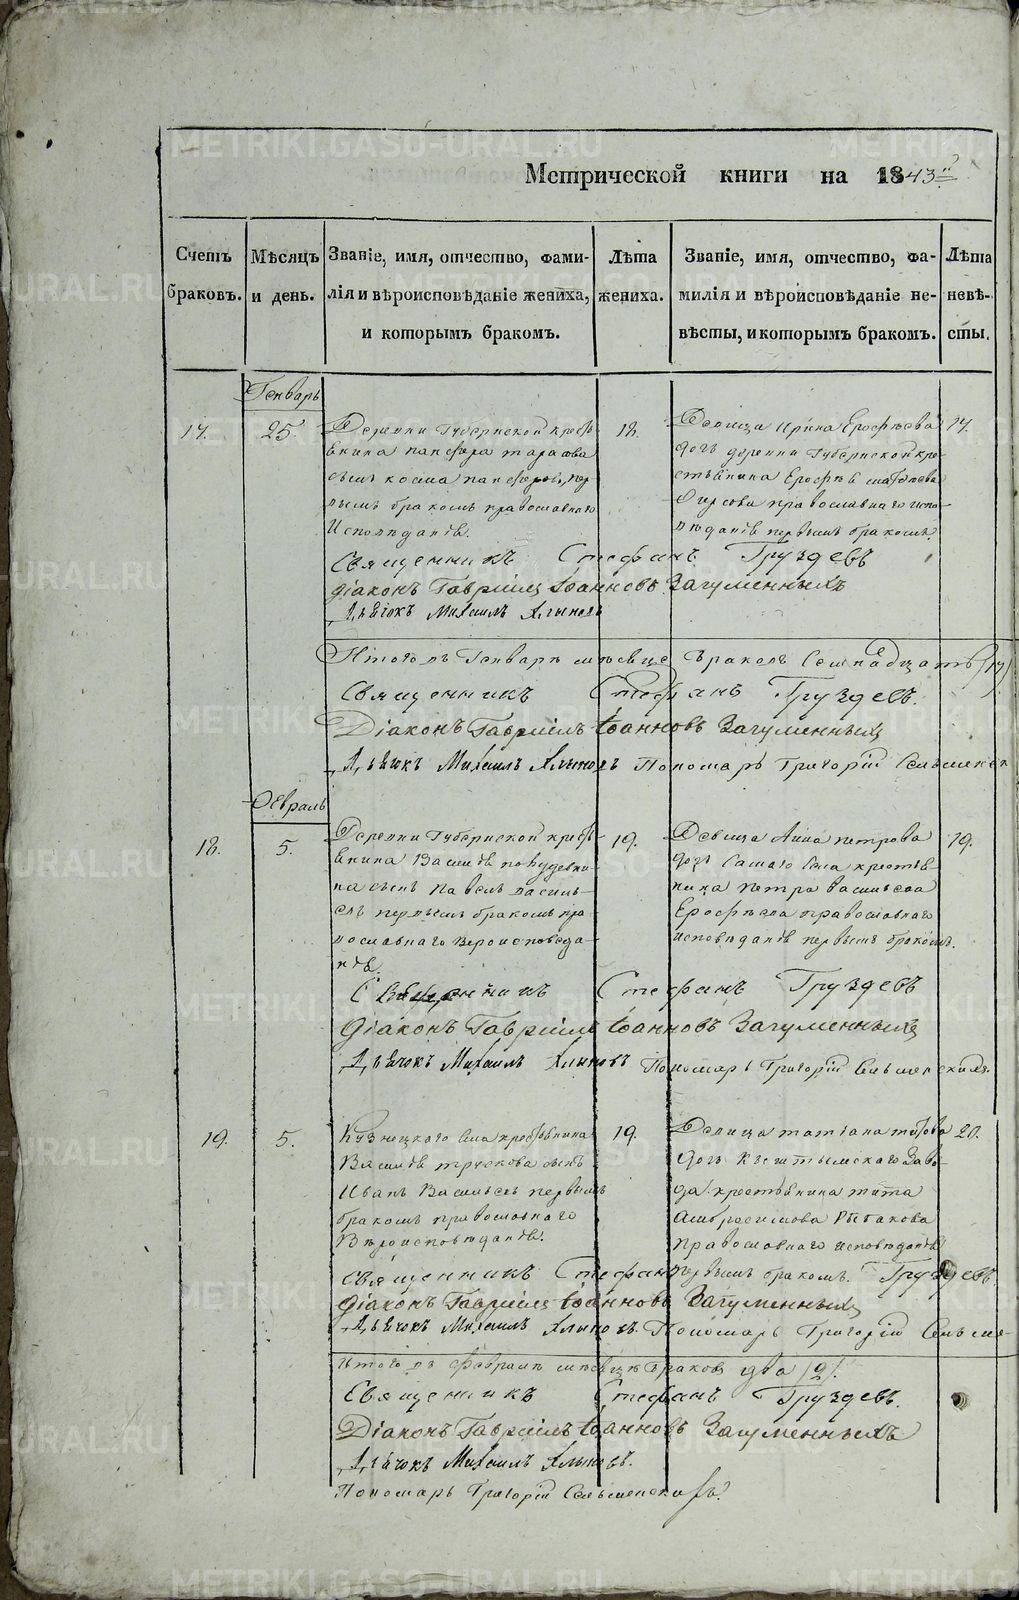 Метрической книги на 1843й
Счетъ браковъ.
Мѣсяцъ и день.
Званіе, имя, отчество, фами-
лія и вѣроисповѣданіе жениха,
и которымъ бракомъ.
Лѣта жениха.
Званіе, имя, отчество, фа-
милія и вѣроисповѣданіе не-
вѣсты, и которымъ бракомъ.
Лѣта невѣ-
сты.
Генварь
17.
25.
Деревни Губернской крестья
нина
сынъ Косма пер
вымъ бракомъ православнаго
Исповѣданія.
18.
Девица Ирина Ерофѣева
дочь деревни Губернской кре
стьянина Ерофѣя
Фирсова православнаго испо-
вѣданія первымъ бракомъ.
17.
Священникъ Стефанъ Груздевъ
діаконъ Гавріилъ Іоанновъ Загуменныхъ
Дьячокъ Михаилъ Хлыновъ
Итого въ Генварѣ мѣсяце браковъ Семнадцать (17)
Священникъ Стефанъ Груздевъ.
Діаконъ Гавріилъ Іоанновъ Загуменныхъ
Дьячокъ Михаилъ Хлыновъ Пономарь Григорій
Февраль
18.
5.
Деревни Губернской крестья
нина Василія
на сынъ Павелъ василь-
евъ первымъ бракомъ пра
вославнаго Вероисповеда-
нія.
19.
Девица Анна петрова
дочь Самаго Села крестья-
нина петра васильева
Ерофѣева православнаго
исповѣданія первымъ бракомъ.
19.
Священникъ Стефанъ Груздевъ
діаконъ Гавріилъ Іоанновъ Загуменныхъ
Дьячокъ Михаилъ Хлыновъ Пономарь Григорій
19.
5.
Кузнецкого Села крестьянина
Василія сынъ
Иванъ Васильевъ первымъ
бракомъ православнаго
Вѣроисповѣданія.
19.
Девица татіана титова
дочь Кыштымскаго Заво-
да крестьянина тита
Амбросимова Рыбакова
православнаго исповѣданія
первымъ бракомъ.
20.
Священникъ Стефанъ Груздевъ.
діаконъ Гавріилъ Іоанновъ Загуменныхъ
Дьячокъ Михаилъ Хлыновъ. Пономарь Григорій
Итого въ феврале мѣсяцѣ браковъ два (2).
Священникъ Стефанъ Груздевъ.
Діаконъ Гавріилъ Іоанновъ Загуменныхъ
Дьячокъ Михаилъ Хлыновъ.
Пономарь Григорій
METRIKI.GASO-URAL.RU